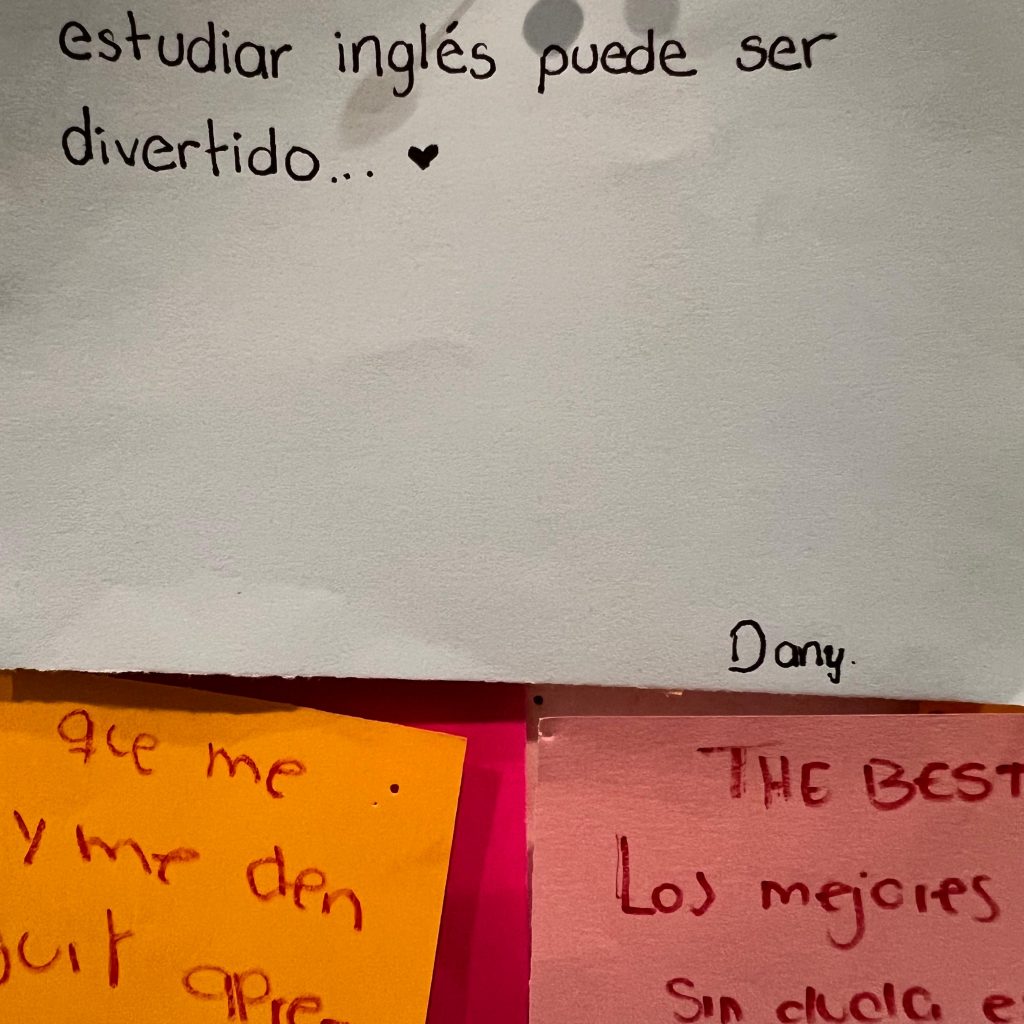 estudiar inglés puede ser
divertido... ♥
Dany.
que me
y me den
apre
THE BEST
Los mejores
Sin duda e